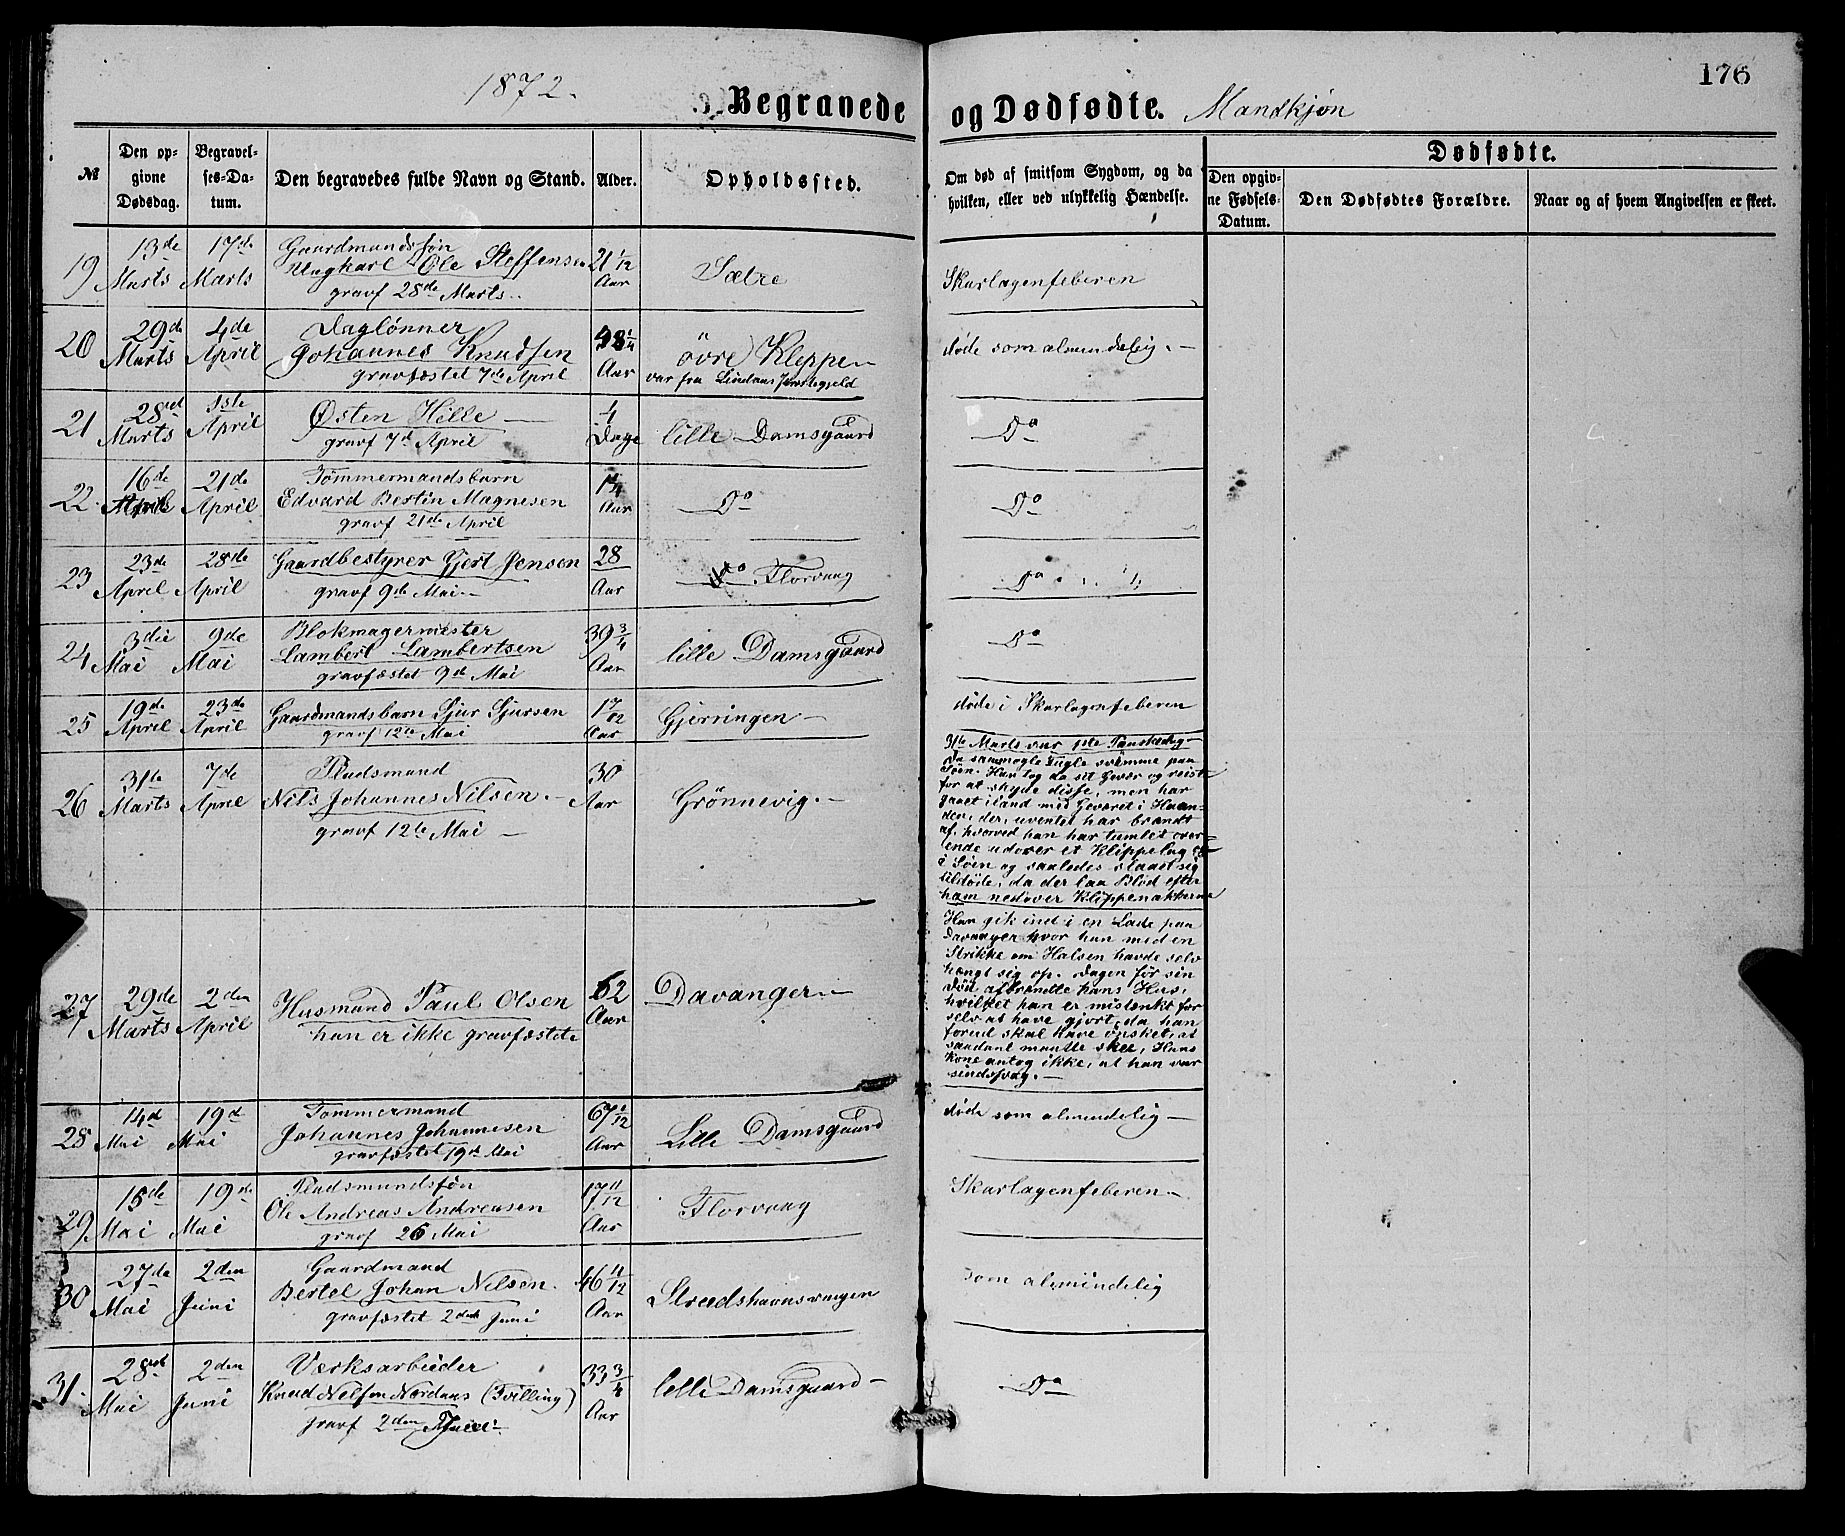 1872.
176
3) Begravede og Dødfødte. Mandkjøn
№
Den op-
givne
Dødsdag.
Begravel-
ses-Da-
tum.
Den begravedes fulde Navn og Stand.
Alder.
Opholdssted.
Om død af smitsom Sygdom, og da
hvilken, eller ved ulykkelig Hændelse.
Dødfødte.
Den opgiv-
ne Fødsels-
Datum.
Den Dødfødtes Forældre.
Naar og af hvem Angivelsen er skeet.
19 13de Marts 17de Marts
Gaardmandssøn
Ungkarl Ole Steffensen
gravf 28de Marts
21 1/12 Aar
Sætre
Skarlagenfeberen
20 29de Marts 4de April
Daglønner
Johannes Knudsen
gravfæstet 7de April
Aar
övre Kleppe
var fra Lindaas Præstegjeld
døde som almindelig
21 28de Marts 1ste April
Østen Hille
gravf 7de April
4 Dage
lille Damsgaard
Do
22 16de April 21de April
Tømmermandsbarn
Edvard Bertin Magnesen
gravf 21de April
1 1/4 Aar
Do
Do
23 23de April 28de April
Gaardbestyrer Gjert Jensen
gravf 9de Mai
28 Aar
Florvaag
Do
24 3die Mai 9de Mai
Blokmagermester
Lambert Lambertsen
gravfæstet 9de Mai
39 3/4 Aar
lille Damsgaard
Do
25 19de April 23de April
Gaardmandsbarn Sjur Sjursen
gravf 12te Mai
1 7/12 Aar
Gjerringen
døde i Skarlagenfeberen
26 31te Marts 7de April
Pladsmand
Nils Johannes Nilsen
gravf 12te Mai
30 Aar
Grönnevig
31te Marts var 1ste Paaskedag
Da saa nogle Fugle svømme paa
Søen. Han tog da sit Gevær og reiste
for at skyde disse, men har
gaaet i land med Geværet i Haan-
den, der, uventet har brandt
af, hvorved han har tumlet over-
ende udover et Klippelag
i Søen og saaledes slaaet sig
tildøde, da der laa Blod efter
ham nedover Klippenakkerne
27 29de Marts 2den April
Husmand Paul Olsen
han er ikke gravfæstet
62 Aar
Davanger
Han gik ind i en Lade paa
Davanger hvor han med en
Strikke om Halsen havde selv
hængt sig op. Dagen før sin
Død afbrændte hans Hus,
hvilket han er mistænkt for
selv at have gjort, da han
forud skal have ønsket, at
saadant maatte skee, Hans
Kone antog ikke, at han var
sindssvag.
28 14d Mai 19d Mai
Tømmermand
Johannes Johannesen
gravfæstet 19de Mai
67 Aar
Lille Damsgaard
døde som almindelig
29 15de Mai 19d Mai
Pladsmandssøn
Ole Andreas Andreasen
gravf 26 Mai
17 11/12 Aar
Florvaag
Skarlagenfeberen
30 27de Mai 2den Juni
Gaardmand
Bertel Johan Nilsen
gravfæstet 2den Juni
46 11/12 Aar
Strædshavnsvaagen
som almindelig
31. 28de Mai 2den Juni
Værksarbeider
Knud Nilsen Nordaas (Tvilling)
gravf 2den Juni
33 3/4 Aar
lille Damsgaard
Do